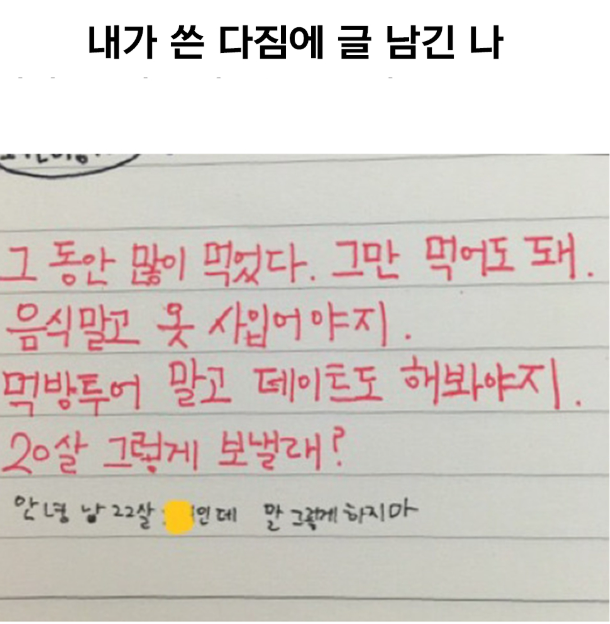 내가 쓴 다짐에 글 남긴 나
그 동안 많이 먹었다. 그만 먹어도 돼.
음식말고 옷 사입어야지.
먹방투어 말고 데이트도 해봐야지.
20살 그렇게 보낼래?
안녕 난 22살 인데 말 그렇게 하지마